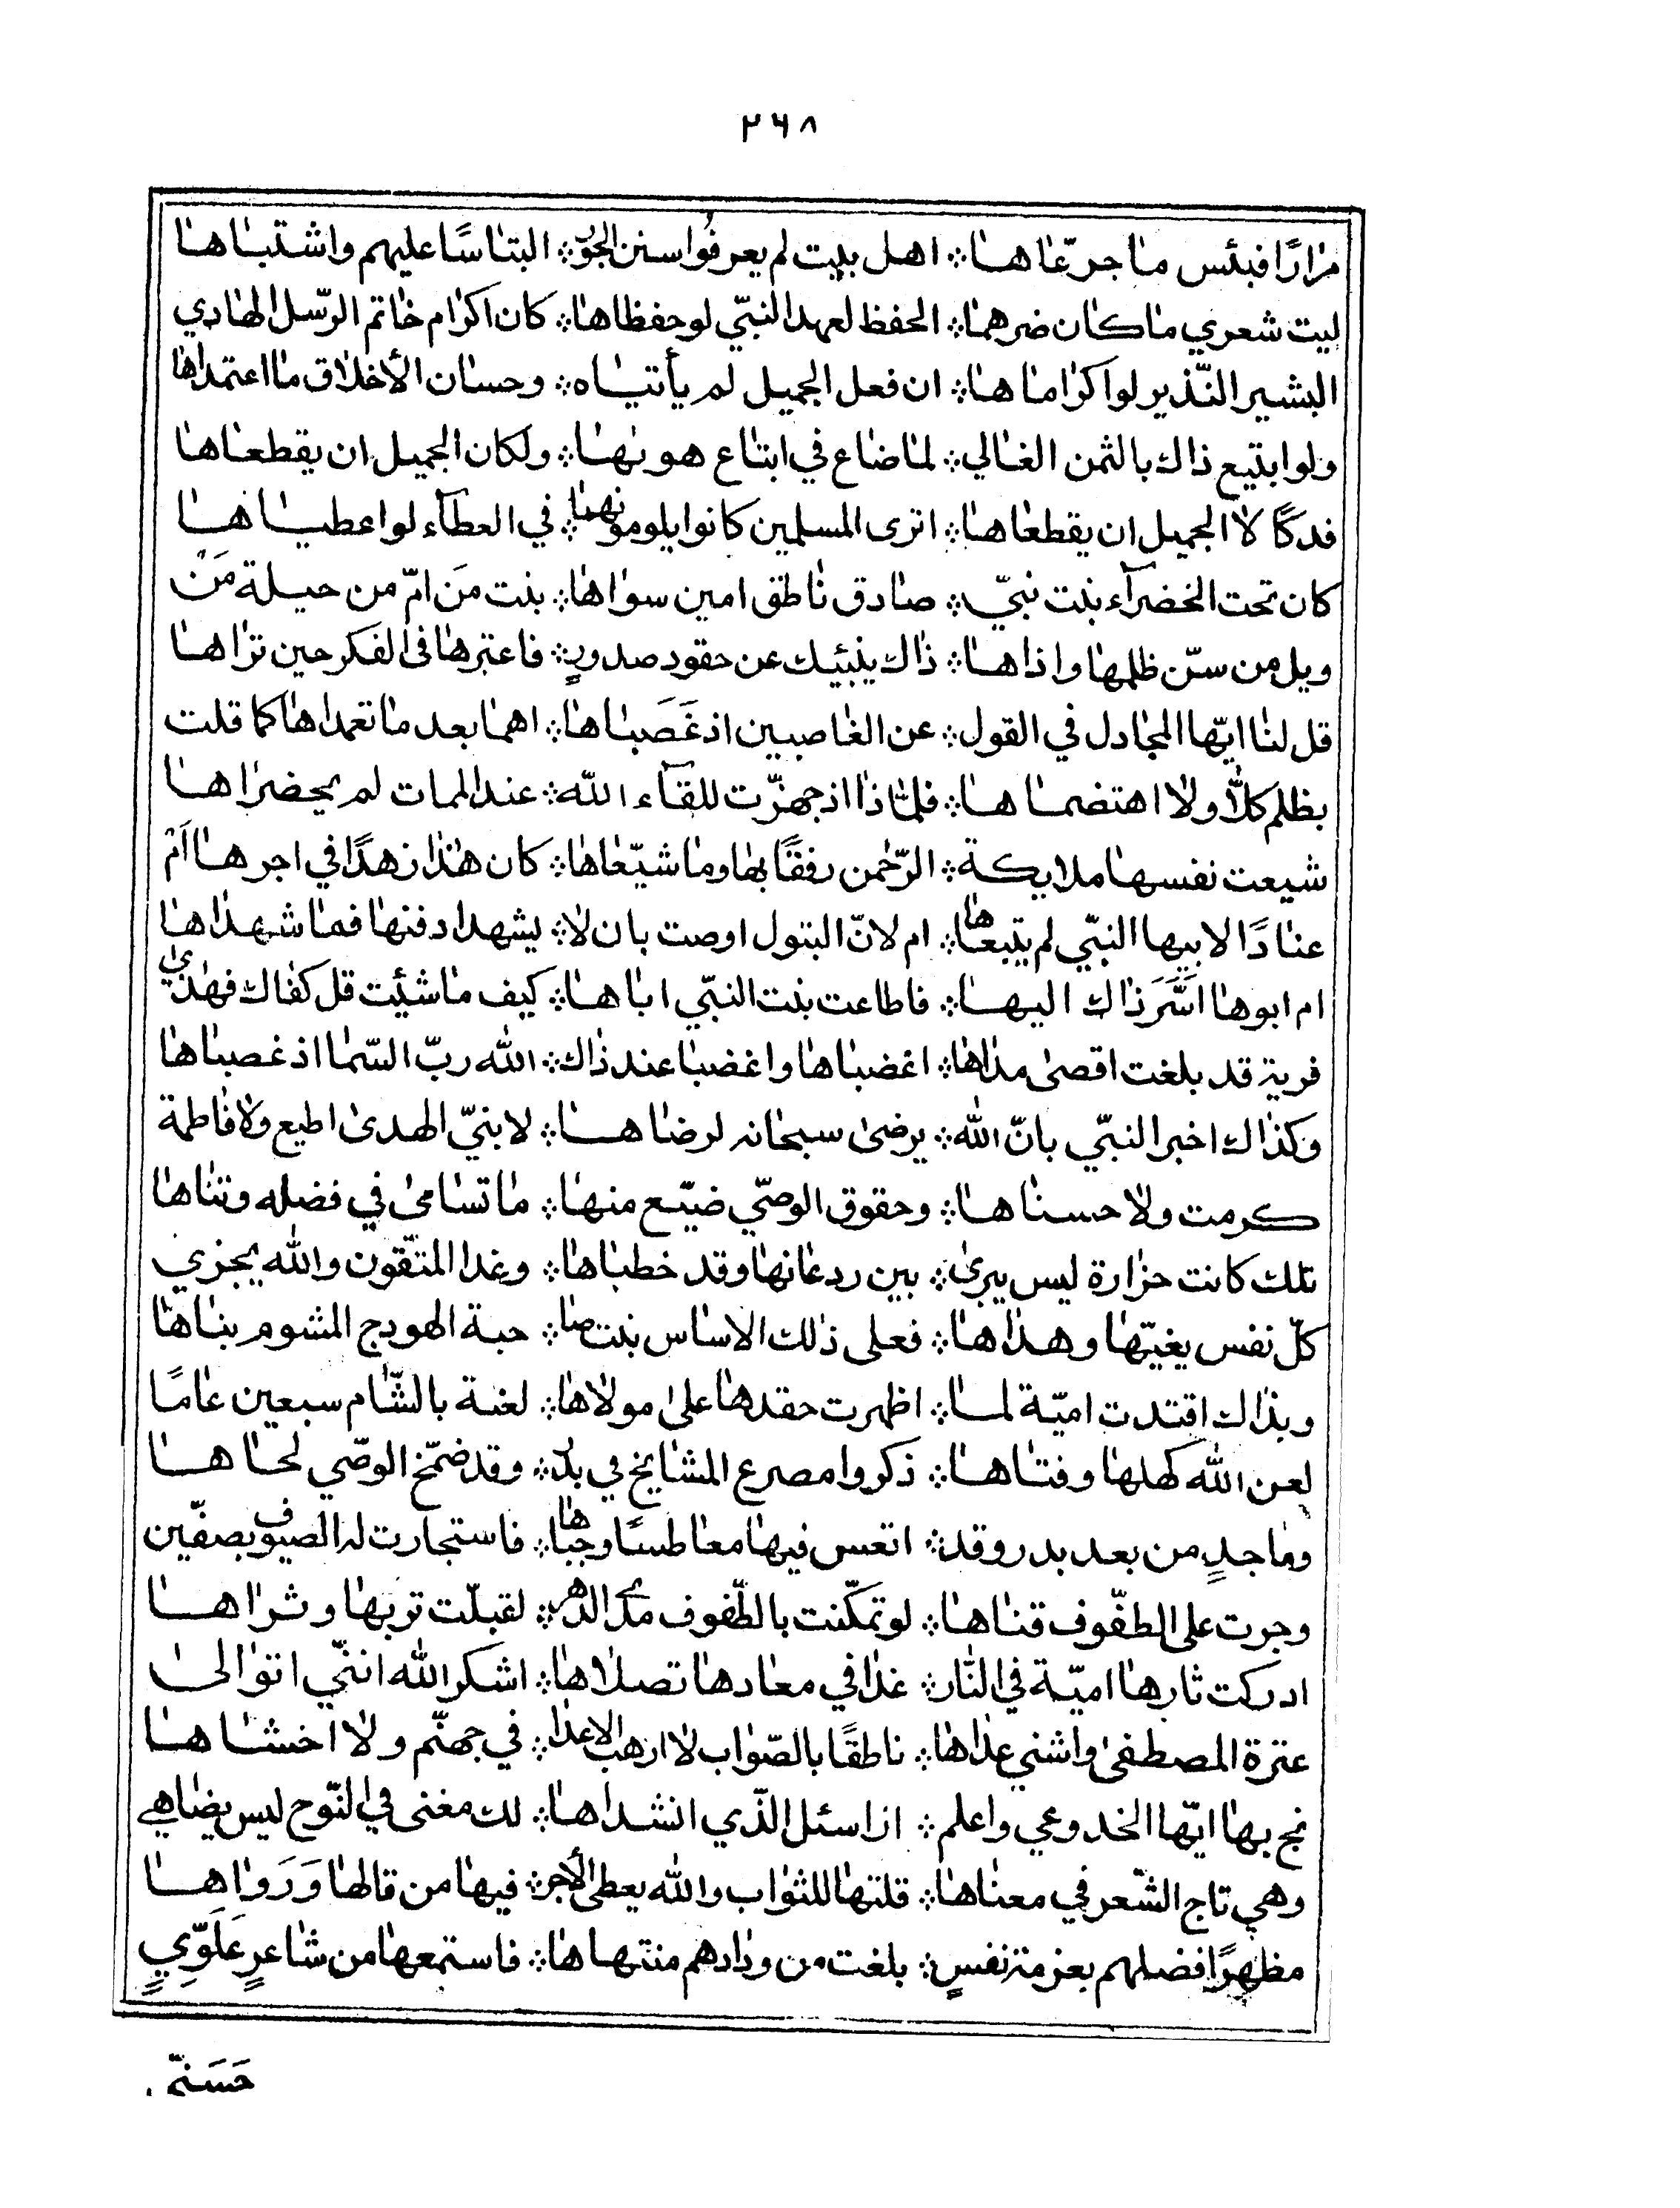 ٢٦٨
مرارًا فبئس ما جرّعاها ۞ اهل بيت لم يعرفوا سنن الجور ۞ التباسًا عليهم واشتباها
ليت شعري ما كان ضرهما ۞ الحفظ لعهد النبّي لو حفظاها ۞ كان اكرام خاتم الرّسل الهادي
البشير النّذير لو اكراماها ۞ ان فعل الجميل لم يأتياه ۞ وحسان الأخلاق ما اعتمداها
ولو ابتيع ذاك بالثمن الغالي ۞ لما ضاع في ابتاع هويٰها ۞ ولكان الجميل ان يقطعاها
فدكًا لا الجميل ان يقطعاها ۞ اترى المسلمين كانوا يلومونهما ۞ في العطآء لو اعطياها
كان تحت الخضرآء بنت نبيّ ۞ صادق ناطق امين سواها ۞ بنت مَن امّ من حيلة مَنْ
ويل من سنّ ظلمها واذاها ۞ ذاك ينبئيك عن حقود صدورٍ ۞ فاعتبرها فى الفكر حين تراها
قل لنا ايّها المجادل في القول ۞ عن الغاصبين اذ غَصَباها ۞ اهما بعد ما تعمداها كما قلت
بظلم كلّا ولا اهتضماها ۞ فلمّاذا اذ جهزّت للقآء الله ۞ عند الممات لم يحضراها
شيعت نفسها ملايكة ۞ الرّحمن رفقًا بها وما شيّعاها ۞ كان هذا زهدًا في اجرها اَمْ
عنادًا لابيها النبّي لم يتبعاها ۞ ام لانّ البتول اوصت بان لا ۞ يشهدا دفنها فما شهداها
ام ابوها اسَّرَ ذاك اليها ۞ فاطاعت بنت النبّي اباها ۞ كيف ما شئت قل كفاك فهذي
فرية قد بلغت اقصى مداها ۞ اغضباها واغضبا عند ذاك ۞ الله ربّ السّما اذ غصباها
وكذاك اخبر النبّي بانّ الله ۞ يرضى سبحانه لرضاها ۞ لا بنيّ الهدى اطيع ولا فاطمة
كرمت ولا حسناها ۞ وحقوق الوصّي ضيّع منها ۞ ما تسامى في فضله وتناها
تلك كانت حزارة ليس يبرى ۞ بين ردعانها وقد خطباها ۞ وغدا المتّقون والله يجزي
كلّ نفس بغيّها وهداها ۞ فعلى ذلك الاساس بنت صا ۞ حبة الهودج المشوم بناها
وبذاك اقتدت اميّة لما ۞ اظهرت حقدها على مولاها ۞ لعنة بالشّام سبعين عامًا
لعن الله كهلها وفتاها ۞ ذكروا مصرع المشايخ في بدر ۞ وقد ضمّخ الوصّي لحاها
وما جدٍ من بعد بدر وقد ۞ اتعس فيها معاطسًا وجباها ۞ فاستجارت له الصيوف بصفّين
وجرت على الطفّوف قناها ۞ لو تمكّنت بالطّفوف مدى الدهر ۞ لقبلّت تربها وثراها
ادركت ثارها اميّة في النّار ۞ غدا في معادها تصلاها ۞ اشكر الله اننّي اتوالى
عترة المصطفى واشني عداها ۞ ناطقًا بالصّواب لا ارهب الاعدا ۞ في جهنّم ولا اخشاها
نج بها ايّها الخدوعي واعلم ۞ ان اسئل الذّي انشداها ۞ لك مغنى في النّوح ليس يضاهي
وهي تاج الشّعر في معناها ۞ قلتها للثواب والله يعطى الاجر ۞ فيها من قالها وَرَواها
مظهرًا فضلهم بعزمة نفسٍ ۞ بلغت من ودادهم منتهاها ۞ فاستمعها من شاعرٍ عَلَوّيٍ
حَسَنيّ